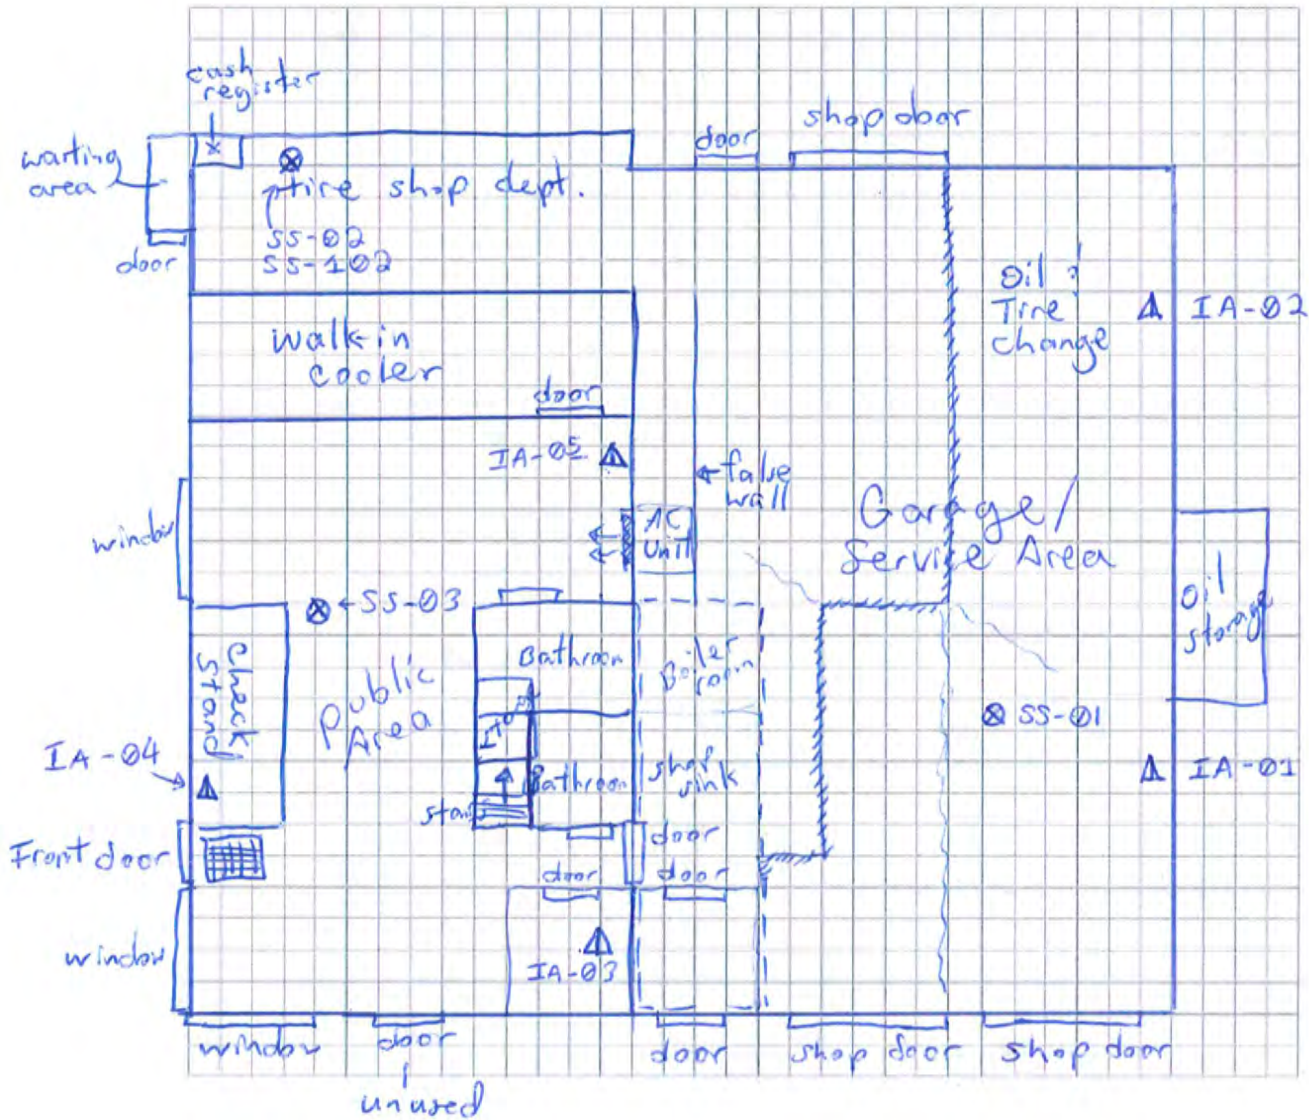 cash
register
waiting
area
door
tire shop dept.
SS-02
SS-102
door
shop door
walk-in
cooler
door
IA-05
false
wall
AC
Unit
Oil &
Tire
change
IA-02
Garage/
Service Area
Oil
storage
window
SS-03
Check
stand
Public
Area
Bathroom
Boiler
room
SS-01
IA-04
Bathroom
shop
sink
IA-01
Front door
door
door
door
window
IA-03
window
door
unused
door
shop door
shop door